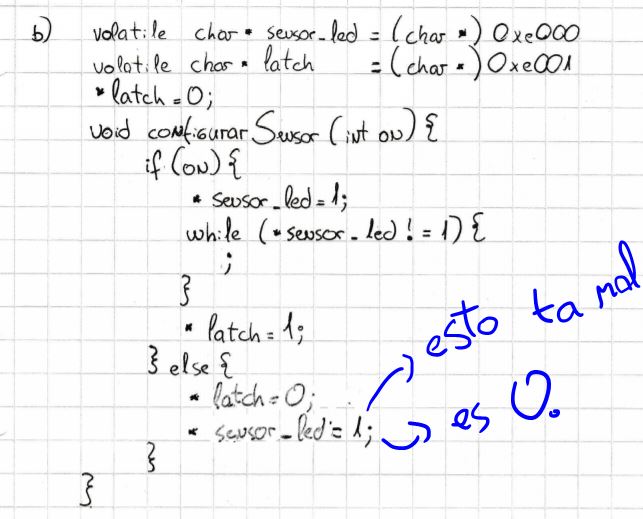 b) volatile char * sensor_led = (char *) 0xe000
volatile char * latch = (char *) 0xe001
* latch = 0;
void configurar Sensor (int on) {
if (on) {
* sensor_led = 1;
while (* sensor_led != 1) {
;
}
* latch = 1;
} else {
* latch = 0;
* sensor_led = 1;
}
}
esto ta mal
es 0.